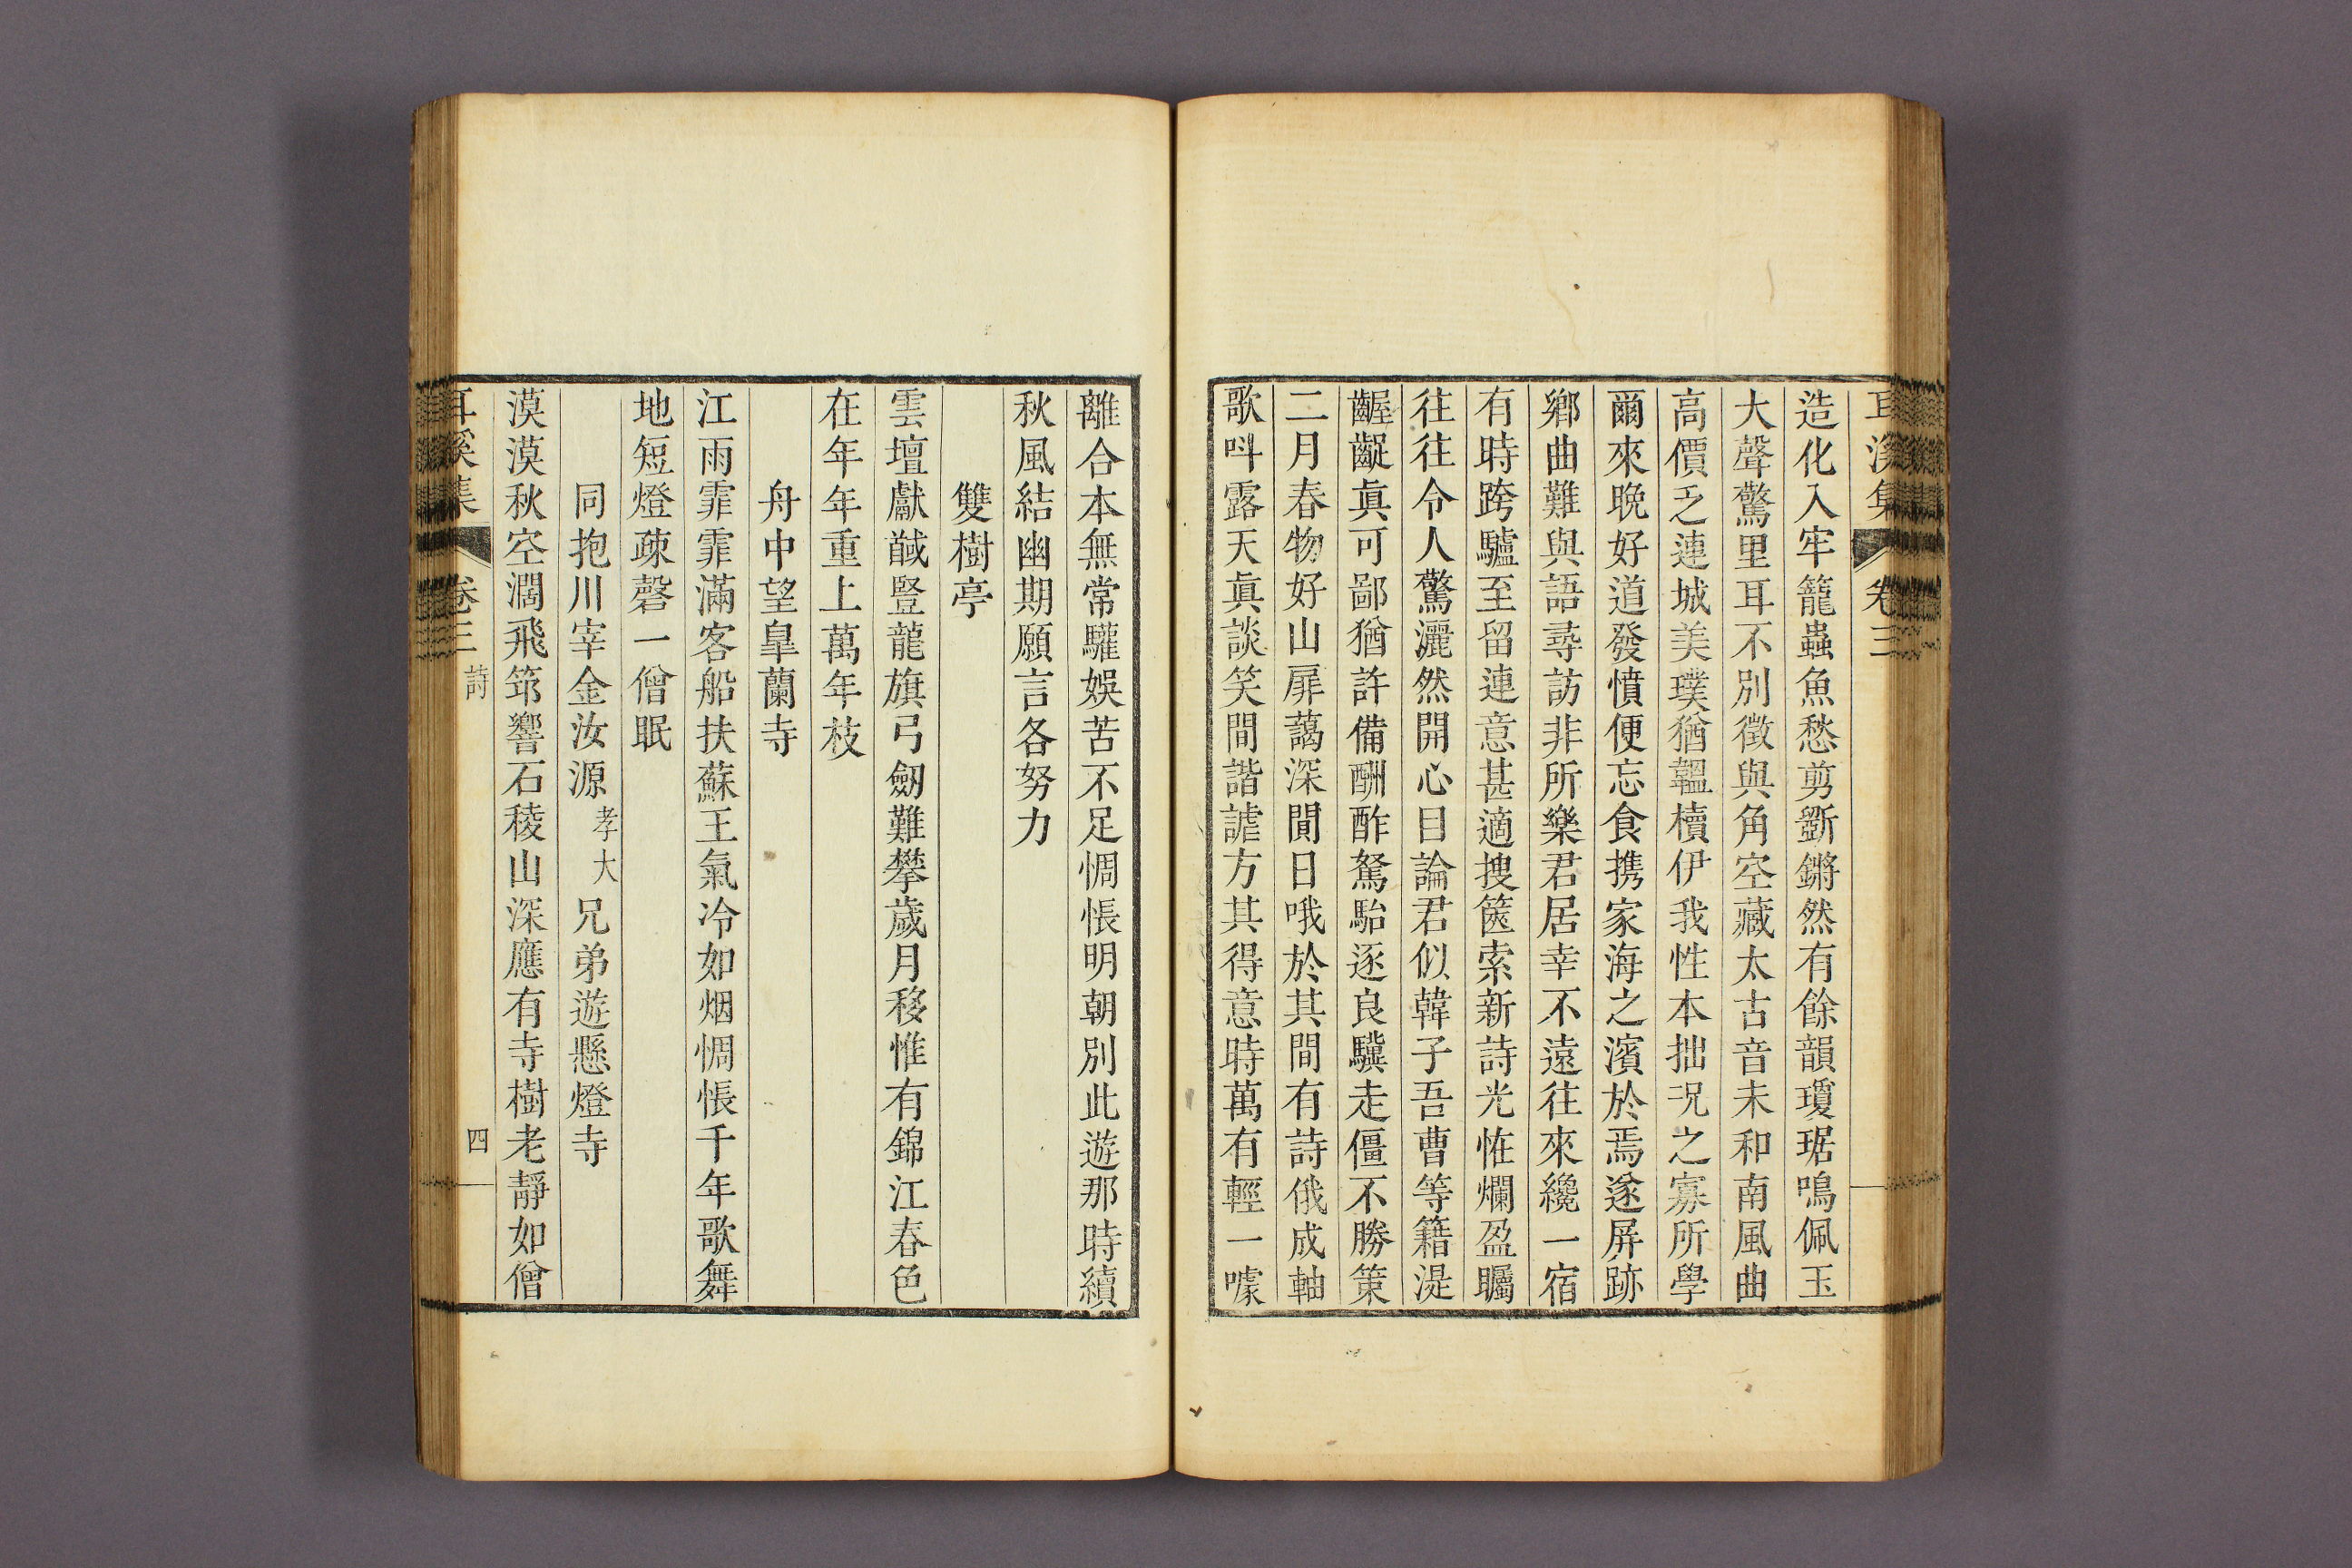 耳溪集 卷三
造化入牢籠蟲魚愁剪斵鏘然有餘韻瓊琚鳴佩玉
大聲驚里耳不別徵與角空藏太古音未和南風曲
高價乏連城美璞猶韞櫝伊我性本拙況之寡所學
爾來晩好道發憤便忘食携家海之濱於焉遂屏跡
鄕曲難與語尋訪非所樂君居幸不遠往來纔一宿
有時跨驢至留連意甚適搜篋索新詩光恠爛盈矚
往往令人驚灑然開心目論君似韓子吾曹等籍湜
齷齪眞可鄙猶許備酬酢駑駘逐良驥走僵不勝策
二月春物好山扉藹深閒日哦於其間有詩俄成軸
歌呌露天眞談笑間諧謔方其得意時萬有輕一噱
離合本無常驩娛苦不足惆悵明朝別此遊那時續
秋風結幽期願言各努力
雙樹亭
雲壇獻馘豎龍旗弓劒難攀歲月移惟有錦江春色
在年年重上萬年枝
舟中望皐蘭寺
江雨霏霏滿客船扶蘇王氣冷如烟惆悵千年歌舞
地短燈疎磬一僧眠
同抱川宰金汝源孝大兄弟遊懸燈寺
漠漠秋空濶飛筇響石稜山深應有寺樹老靜如僧
耳溪集 卷三 詩 四